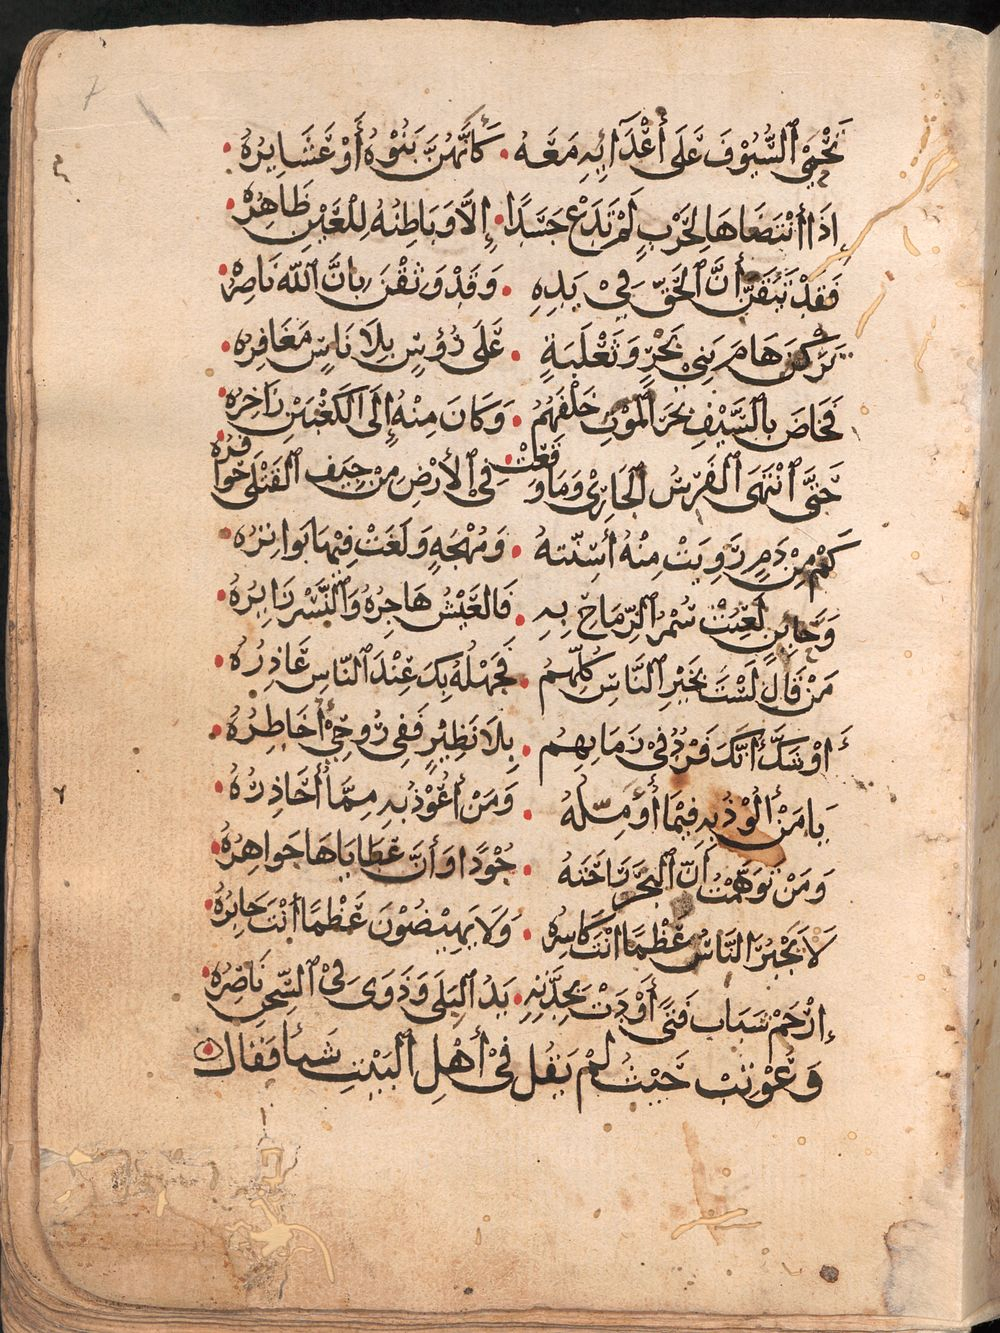 تَحْمِي السُّيُوْفَ عَلَى أَعْدَآئِهِ مَعَهُ • كَأَنَّهُنَّ بَنُوْهُ أَوْ عَشَايِرُهُ •
إِذَا أَنْتَضَاهَا لِحَرْبٍ لَمْ تَدَعْ جَسَدًا • إِلَّا وَبَاطِنُهُ لِلْعَيْنِ ظَاهِرُهُ •
فَقَدْ تَيَقَّنَّ أَنَّ الْحَقَّ فِيْ يَدِهِ • وَقَدْ وَثِقْنَ بِانَّ اللّٰهَ نَاصِرُهُ •
تَرَكْنَ هَامَ بَنِيْ بَحْرٍ وَثَعْلَبَةٍ • عَلَى رُؤُسٍ بِلَا نَاسٍ مَغَافِرُهُ •
فَخَاضَ بِالسَّيْفِ بَحْرَ الْمَوْتِ خَلْفَهُمُ • وَكَانَ مِنْهُ إِلَى الْكَعْبَيْنِ زَاخِرُهُ •
حَتَّى انْتَهَى الْفَرَسُ الْجَارِيْ وَمَا وَقَعَتْ • فِي الْأَرْضِ مِنْ جِيَفِ الْقَتْلَى حَوَافِرُهُ
كَمْ مِنْ دَمٍ رَوِيَتْ مِنْهُ أَسِنَّتهُ • وَمُهْجَهٍ وَلَغَتْ فِيْهَا بَوَاتِرُهُ •
وَحَايِنٍ لَعِبَتْ سُمْرُ الرِّمَاحِ بِهِ • فَالعَيْشُ هَاجِرُهُ وَالنَّسْرُ زَايِرُهُ •
مَنْ قَالَ لَسْتَ بَخَيْرِ النَّاسِ كُلِّهِمُ • فَجَهْلُهُ بِكَ عِنْدَ النَّاسِ عَاذِرُهُ •
أَوْ شَكَّ أَنَّكَ فَرْدٌ فِيْ زَمَانِهِمُ • بِلَا نَظِيْرٍ فَفِي رُوْحِيْ أُخَاطِرُهُ •
يَا مَنْ أَلُوْذُ بِهِ فِيْمَا أُؤَمِّلُهُ • وَمَنْ أَعُوْذُ بِهِ مِمَّا أُحَاذِرُهُ •
وَمَنْ تَوَهَّمْتُ أَنَّ الْبَحْرَ رَاحَتهُ • جُوْدًا وَأَنَّ عَطَايَاهَا جَوَاهِرُهُ •
لَا يَجْبُرُ النَّاسُ عَظْمًا أَنْتَ كَاسِرُهُ • وَلَا يَهِيْضُوْنَ عَظْمًا أَنْتَ جَابِرُهُ •
إِرْحَمْ شَبَابَ فَتًى أَوْدَتْ بِجِدَّتِهِ • يَدُ الْبَلَى وَذَوَى فِيْ السِّجْنِ نَاضِرُهُ •
وَعُوْتِبَ حَيْثُ لَمْ يَقُلْ فِيْ أَهْلِ الْبَيْتِ شَيأً فَقَالَ